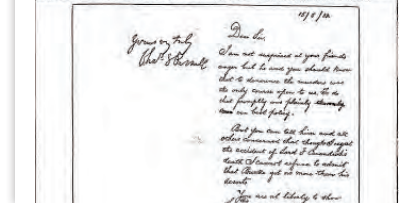 15/5/82
Yours very truly
Chas. S. Parnell
Dear Sir,
I am not surprised at your friend's
anger but he and you should know
that to denounce the murders was
the only course open to us. To do
that promptly was plainly
our best policy.
But you can tell him and all
others concerned that though I regret
the accident of Lord F Cavendish's
death I cannot refuse to admit
that Burke got no more than his
deserts
You are at liberty to show